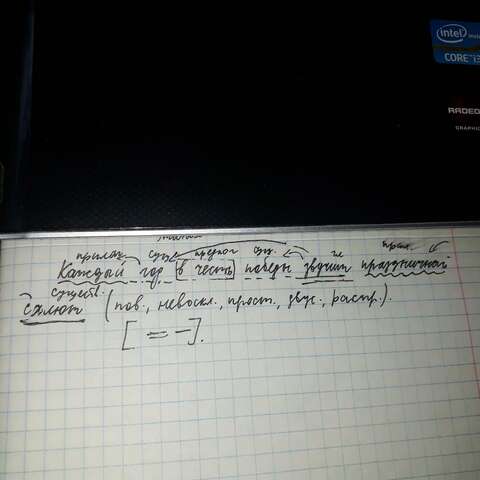 intel
CORE i3
RADEON
GRAPHIC
прилаг. сущ. предлог сущ. гл. прил.
Каждый год в честь победы звучит праздничный
существ.
салют (пов., невоскл., прост., двус., распр.).
[ = – ].